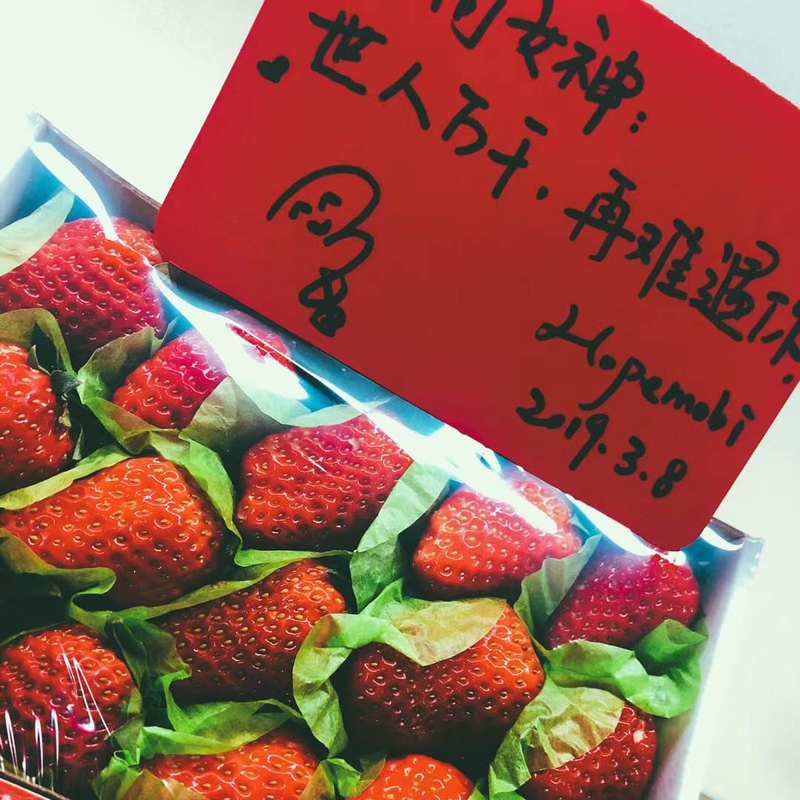 女神：
世人万千，再难遇你。
Hopemobi
2019.3.8